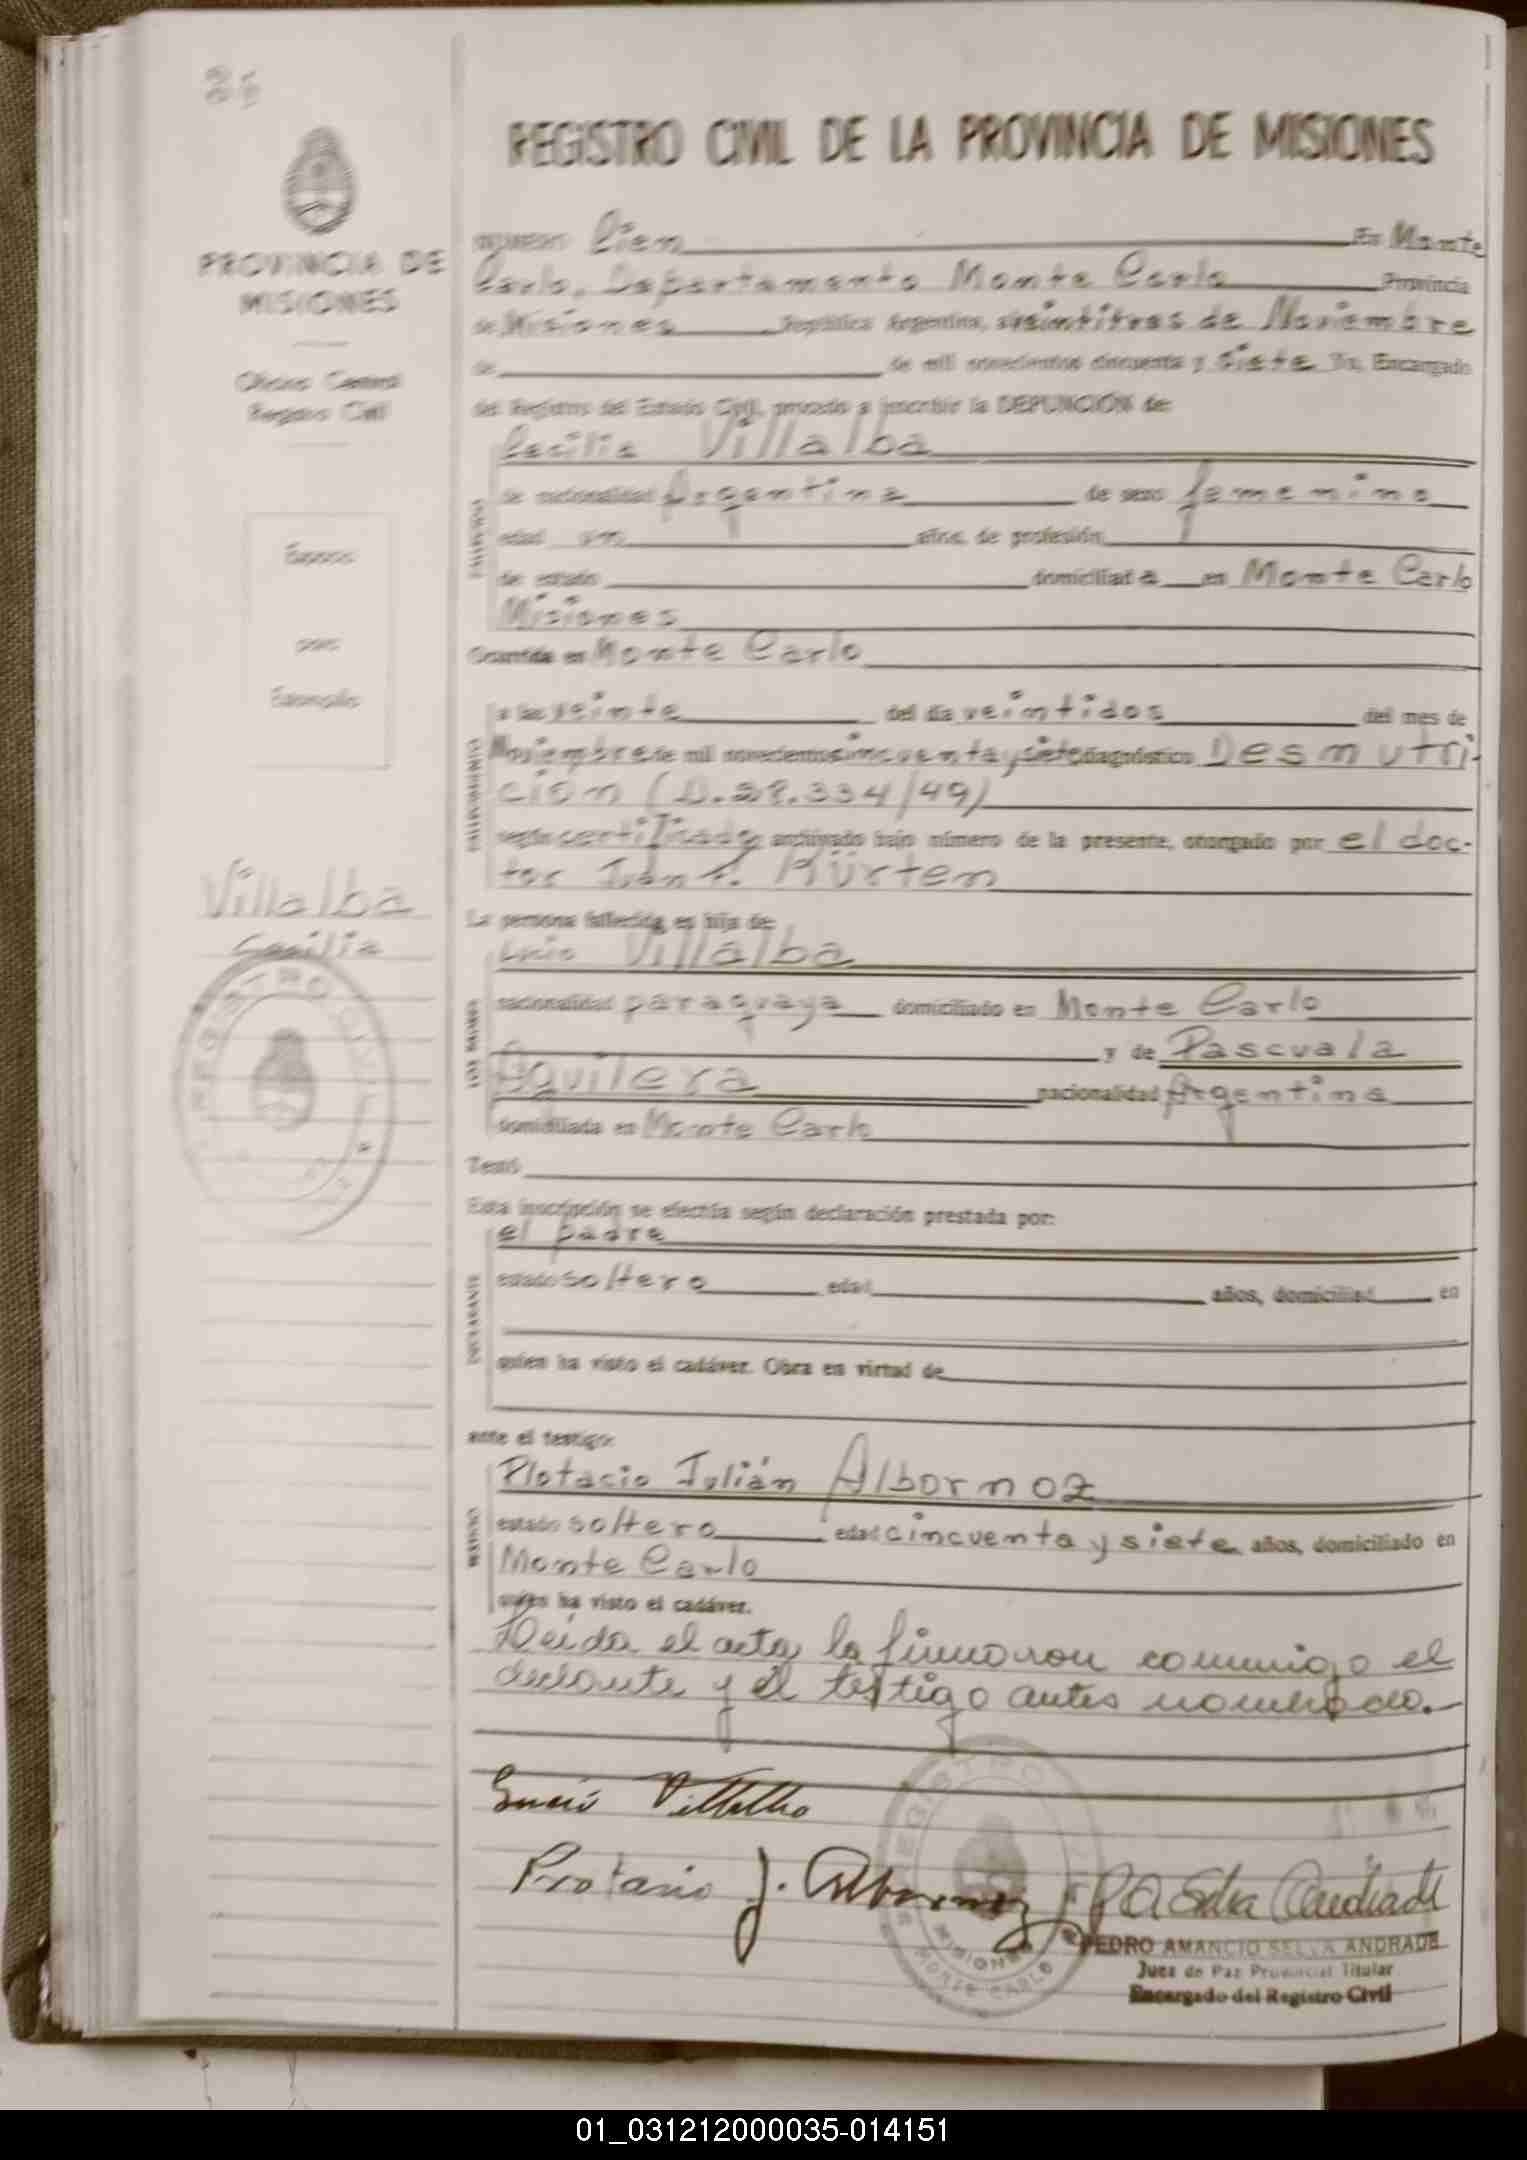 REGISTRO CIVIL DE LA PROVINCIA DE MISIONES
PROVINCIA DE
MISIONES
Oficina Central
Registro Civil
Espacio
para
Estampilla
Villalba
Cecilia
NUMERO Cien En Monte
Carlo, Departamento Monte Carlo Provincia
de Misiones República Argentina, a veintitres de Noviembre
de de mil novecientos cincuenta y siete Yo, Encargado
del Registro del Estado Civil, procedo a inscribir la DEFUNCIÓN de:
Cecilia Villalba
de nacionalidad Argentina de sexo femenino
edad un años, de profesión
de estado domiciliada en Monte Carlo
Misiones
Ocurrida en Monte Carlo
a las veinte del día veintidos del mes de
Noviembre de mil novecientos cincuenta y siete diagnóstico Desnutri-
ción (D. 28.334/49)
según certificado archivado bajo número de la presente, otorgado por el doc-
tor Juan F. Kürten
La persona fallecida, es hija de:
Lucio Villalba
nacionalidad paraguaya domiciliado en Monte Carlo
y de Pascuala
Aguilera nacionalidad Argentina
domiciliada en Monte Carlo
Testó
Esta inscripción se efectúa según declaración prestada por:
el padre
estado soltero edad años, domiciliad en
quien ha visto el cadáver. Obra en virtud de
ante el testigo:
Plotacio Julián Albornoz
estado soltero edad cincuenta y siete años, domiciliado en
Monte Carlo
quien ha visto el cadáver.
Leída el acta la firmaron conmigo el
declante y el testigo antes nombrado.
Lucio Villalba
Protacio J. Albornoz P A Selva Andrade
PEDRO AMANCIO SELVA ANDRADE
Juez de Paz Provincial Titular
Encargado del Registro Civil
REGISTRO
MISIONES
MONTE CARLO
01_031212000035-014151